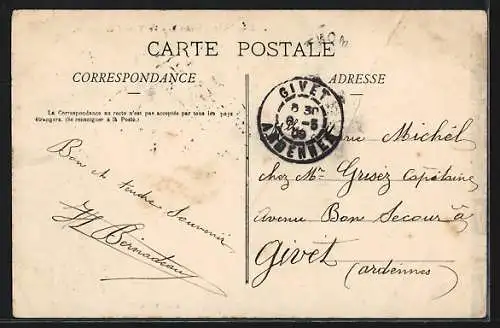 CARTE POSTALE
CORRESPONDANCE
ADRESSE
La Correspondance au recto n'est pas acceptée par tous les pays
étrangers. (Se renseigner à la Poste.)
GIVET
ARDENNES
Bon et tendre souvenir
Michel
chez Mr Grisez Capitaine
avenue Bon Secour à
Givet
(ardennes)